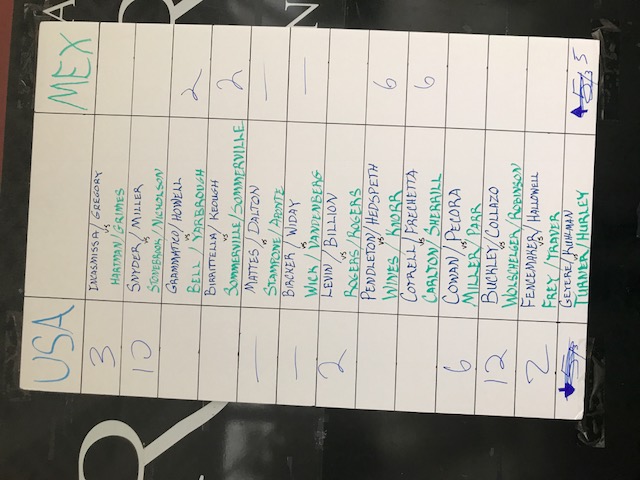 USA MEX
3 /GREGORY
vs
HARTMAN/GRIMES
10 SNYDER/MILLER
vs
/NICHOLSON
GRAMMATICO/HOWELL 2
vs
BELL/YARBROUGH
BIRRITTELLA/KEOUGH 2
vs
SOMMERVILLE/SOMMERVILLE
— MATTES/DALTON —
vs
STAMPONE/APONTE
— BIRCKER/WIDAY —
vs
WICK/VANDENBERG
2 LEVIN/BILLION
vs
ROGERS/ROGERS
PENDLETON/HEDSPETH 6
vs
WINES/KNORR
COTTRELL/FRECHETTA 6
vs
CARLTON/SHERRILL
6 COWAN/PECORA
vs
MILLER/PARR
12 BUCKLEY/COLLAZO
vs
WOLSCHELGER/ROBINSON
2 FENCEMAKER/HALLOWELL
vs
FREY/TRAVER
/KUHLMAN 5
vs
TURNER/HURLEY